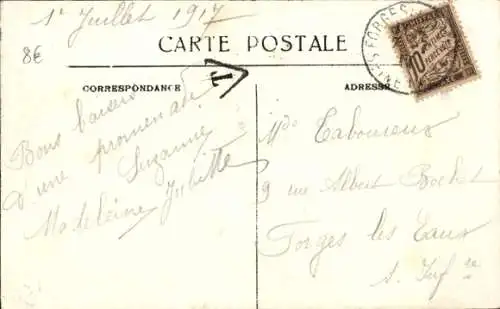 1er Juillet 1917
8€
CARTE POSTALE
T
CORRESPONDANCE
ADRESSE
Bons baisers
d'une promenade
Suzanne
Madeleine Juliette
FORGES
10
Mde Taboureux
9 rue Albert Bochet
Forges les Eaux
s. Infre